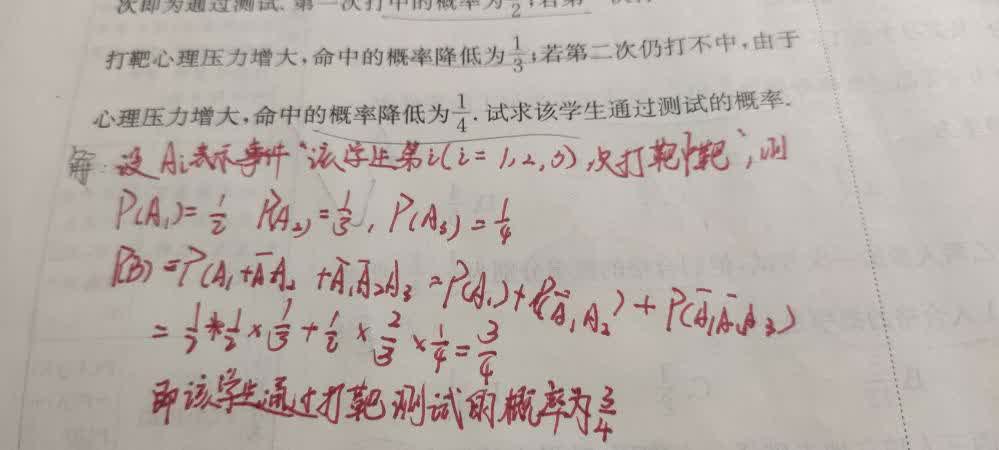 次即为通过测试.第一次打中的概率为1/2;若第一次
打靶心理压力增大,命中的概率降低为1/3;若第二次仍打不中,由于
心理压力增大,命中的概率降低为1/4.试求该学生通过测试的概率.
解:设Ai表示事件“该学生第i(i=1,2,3)次打靶中靶”,则
P(A₁)=1/2 P(A₂)=1/3,P(A₃)=1/4
P(B)=P(A₁+ĀA₂+Ā₁Ā₂A₃=P(A₁)+P(Ā₁A₂)+P(Ā₁Ā₂A₃)
=1/2+1/2×1/3+1/2×2/3×1/4=3/4
即该学生通过打靶测试的概率为3/4